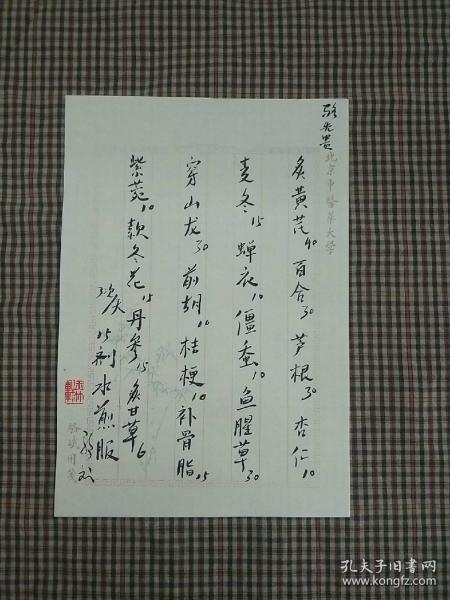 北京中医药大学
炙黄芪40 百合30 芦根30 杏仁10
麦冬15 蝉衣10 僵蚕10 鱼腥草30
穿山龙30 前胡10 桔梗10 补骨脂15
紫菀10 款冬花15 丹参15 炙甘草6
15剂 水煎服
孔夫子旧书网
www.kongfz.com